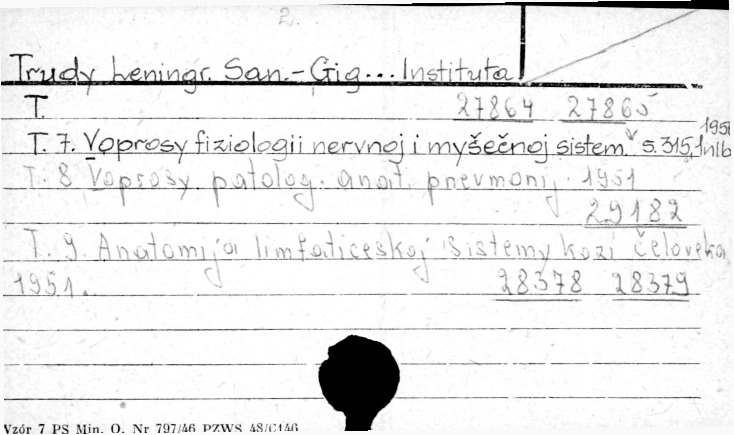 2.
Trudy Leningr. San.-Gig... Instituta
T. 27864 27865
T. 7. Voprosy fiziologii nervnoj i myšečnoj sistem. s. 315, 1nlb 1950
T. 8 Voprosy patolog. anat. pnevmonij. 1951
29182
T. 9. Anatomija limfaticeskoj sistemy kozi čeloveka
1951. 28378 28379
Vzór 7 PS Min. O. Nr 797/46 PZWS 48/C146